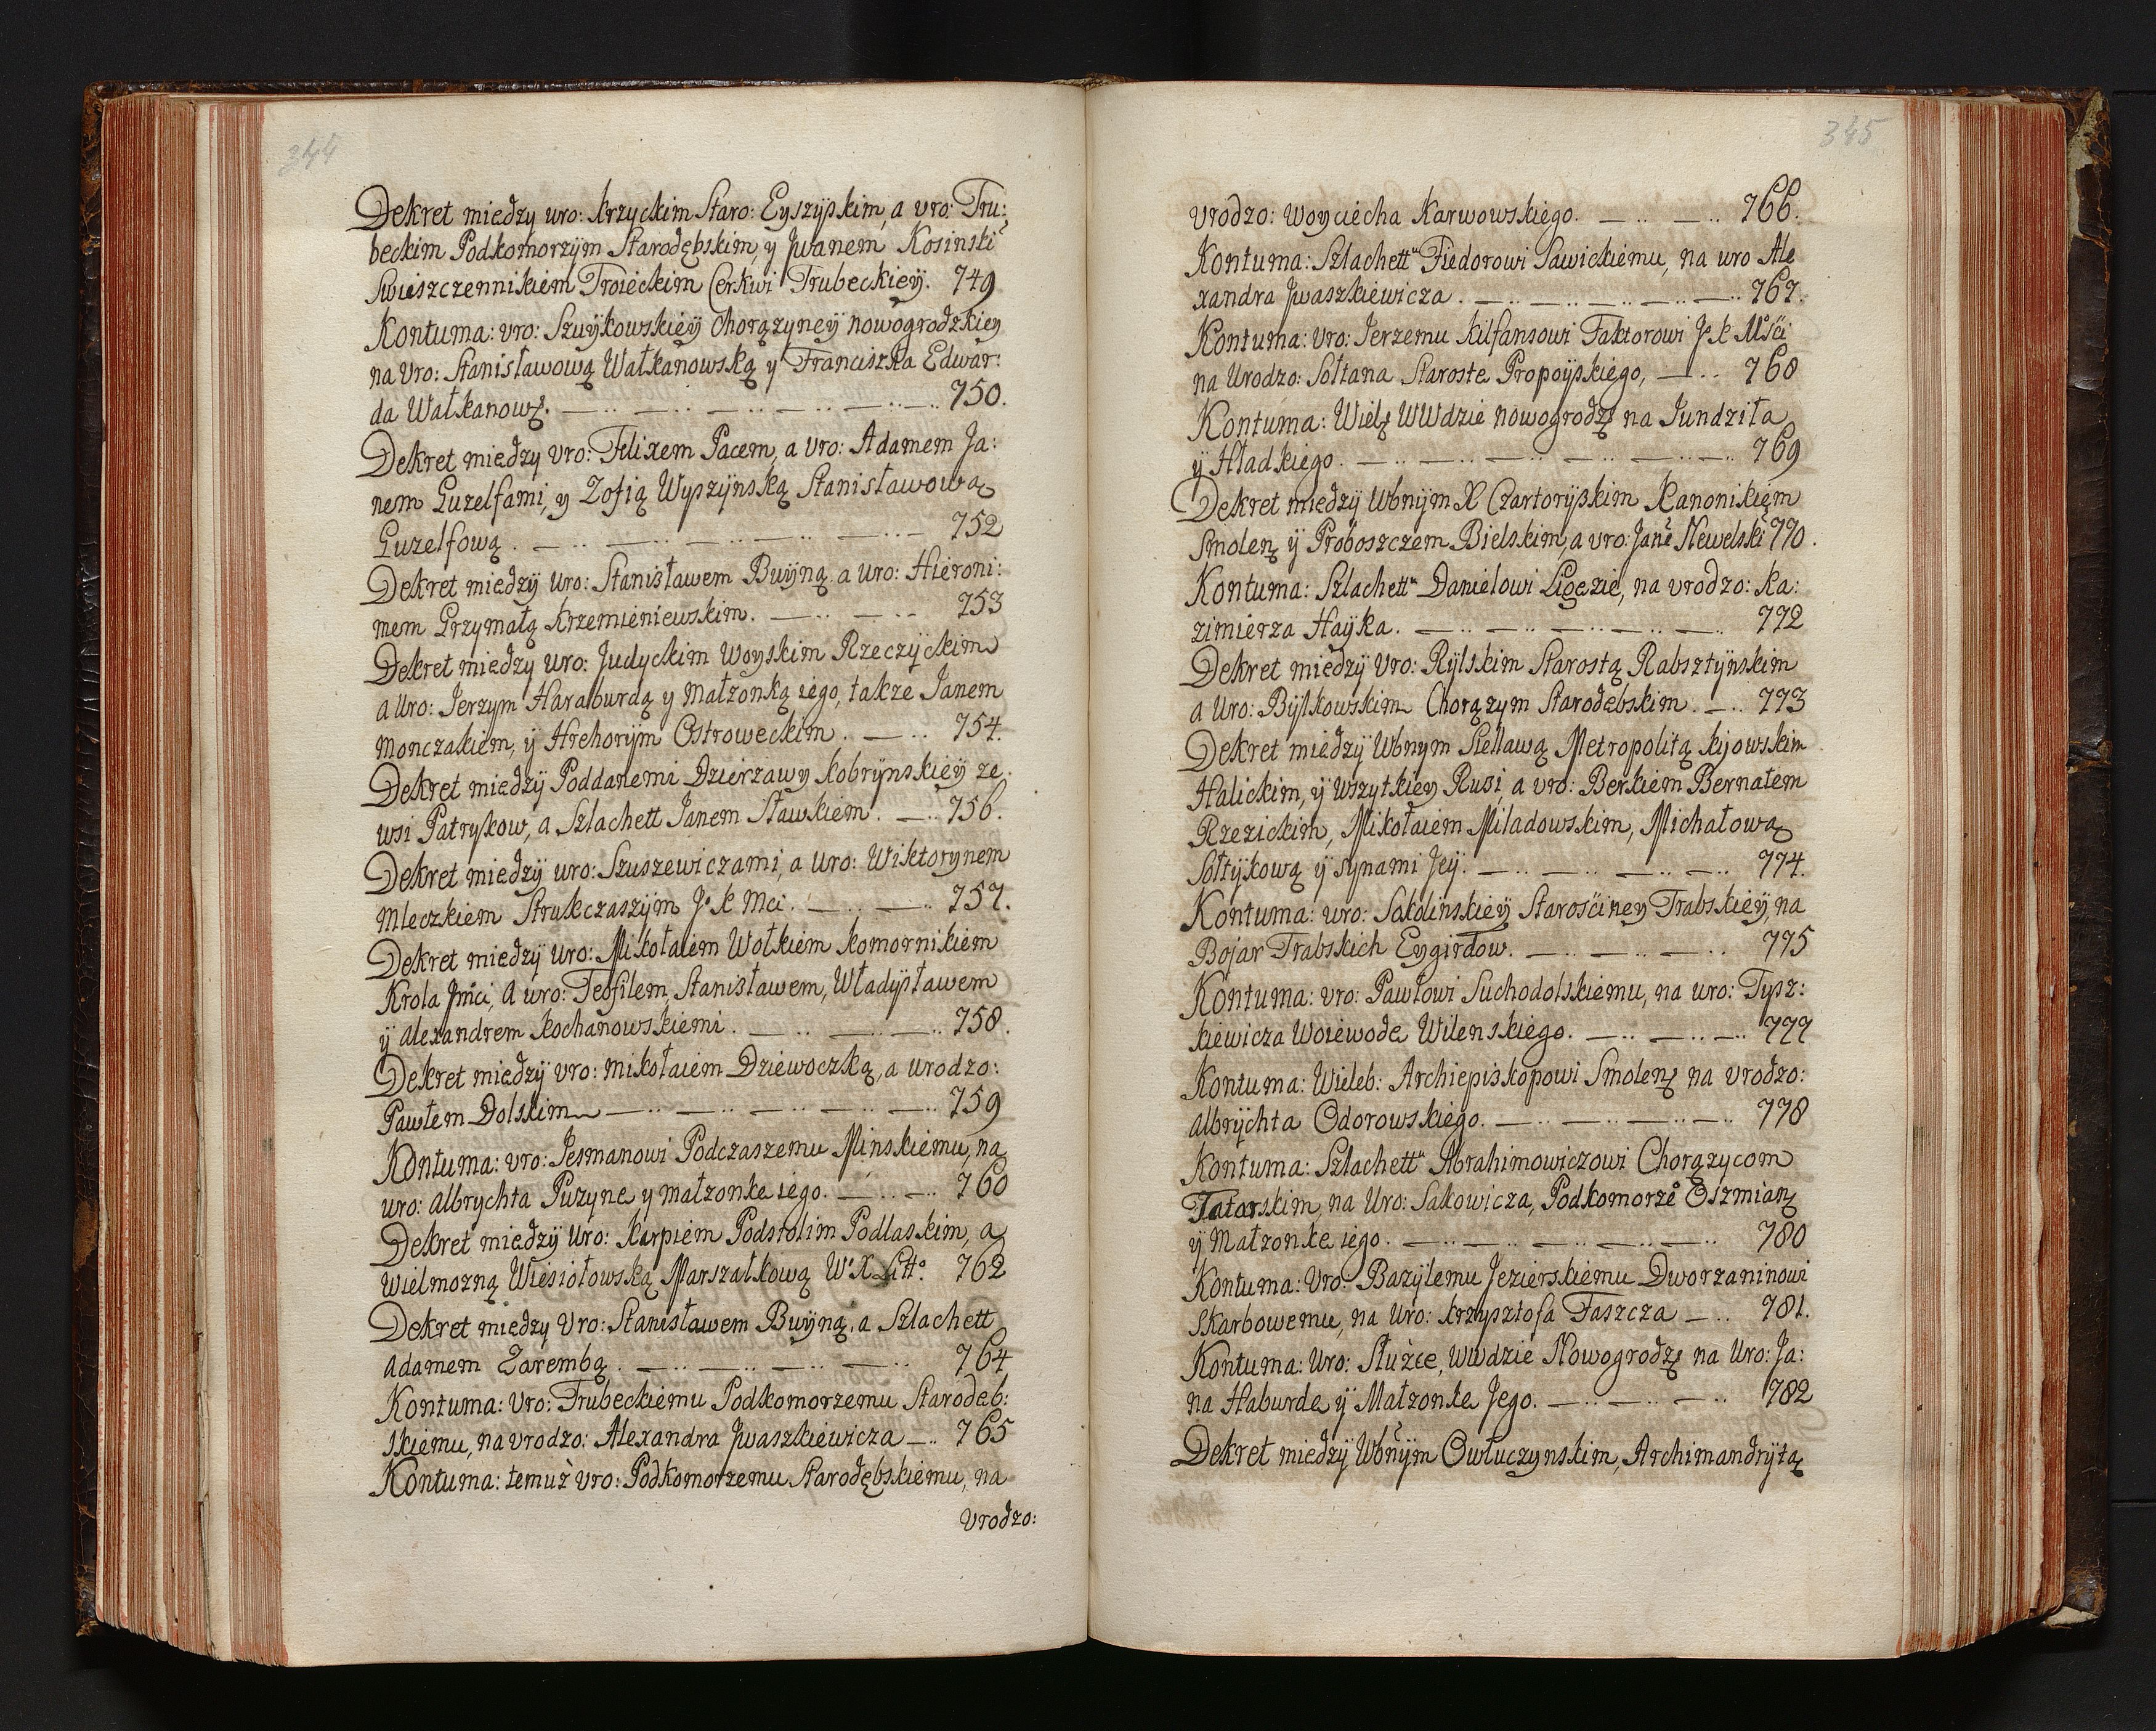 344
Dekret między uro: Krzyckim Staro: Eyszyskim, a vro: Tru:
beckim Podkomorzym Starodębskim, y Jwanem Kosinski
Swieszczennikiem Troieckim Cerkwi Trubeckiey. 749
Kontuma: vro: Szuykowskiey Chorązyney nowogrodzkiey
na Vro: Stanisławową Wałkanowską y Franciszka Edwar:
da Wałkanow. 750.
Dekret miedzy Vro: Felixem Pacem, a Vro: Adamem Ja:
nem Guzelfami, y Zofią Wyszynską Stanisławową
Guzelfową. 752
Dekret miedzy Uro: Stanisławem Buyną a Uro: Hieroni:
mem Przymałą Krzemieniewskim. 753
Dekret miedzy uro: Judyckim Woyskim Rzeczyckim
a Uro: Jerzym Haraburdą y Małzonką iego, takze Janem
Monczakiem, y Hrehorym Ostroweckim. 754.
Dekret miedzy Poddanemi Dzierzawy Kobrynskiey ze
wsi Patrykow, a Szlachett Janem Sławskiem. 756.
Dekret miedzy uro: Szuszewiczami, a uro: Wiktorynem
Mleczkiem Strukczaszym J. K Mci. 757.
Dekret miedzy uro: Mikołaiem Wołkiem Komornikiem
Krola Jmci, A uro: Teofilem, Stanisławem, Władysławem
y Alexandrem Kochanowskiemi. 758.
Dekret miedzy vro: mikołaiem Dziewoczką, a urodzo:
Pawłem Dolskim 759
Kontuma: vro: Jesmanowi Podczaszemu Minskiemu, na
uro: Albrychta Puzyne y małzonke iego. 760
Dekret miedzy Uro: Karpiem Podstolim Podlaskim, a
Wielmozną Wiesiołowską Marszałkową W. X Litt. 762
Dekret miedzy Vro: Stanisławem Buyną, a Szlachett
Adamem Zarembą. 764
Kontuma: Vro: Trubeckiemu Podkomorzemu Starodeb:
skiemu, na vrodzo: Alexandra Jwaszkiewicza 765
Kontuma: temuż vro: Podkomorzemu Starodębskiemu, na
Vrodzo:
345
Vrodzo: Woyciecha Karwowskiego. 766.
Kontuma: Szlachett Fiedorowi Sawickiemu, na uro Ale
xandra Jwaszkiewicza. 767.
Kontuma: Vro: Jerzemu Kilfansowi Faktorowi J. K Mści
na Urodzo: Sołtana Staroste Propoyskiego, 768
Kontuma: Wiel WWdzie nowogrodz na Jundziła
y Hładkiego. 769
Dekret miedzy Wbnym X Czartoryskim Kanonikiem
Smolen y Proboszczem Bielskim, a vro: Jane Newelski 770.
Kontuma: Szlachett Danielowi Ligęzie, na vrodzo: Ka:
zimierza Hayka. 772
Dekret miedzy Vro: Rylskim Starostą Rabsztynskim
a Uro: Bylkowskim Chorązym Starodebskim. 773
Dekret miedzy Wbnym Sielawą Metropolitą kijowskim
Halickim, y Wszytkiey Rusi, a vro: Berkiem Bernatem
Rzezickim, Mikołaiem Miladowskim, Michałową
Sołtykową y Synami Jey. 774.
Kontuma: uro: Sokolinskiey Starościney Trabskiey na
Bojar Trabskich Eygirdow. 775
Kontuma: vro: Pawłowi Suchodolskiemu, na uro: Tysz:
kiewicza Woiewode Wilenskiego. 777
Kontuma: Wieleb: Archiepiskopowi Smolen na vrodzo:
Albrychta Odorowskiego. 778
Kontuma: Szlachett Abrahimowiczowi Chorązycom
Tatarskim, na Uro: Sakowicza, Podkomorze Oszmian
y Małzonke iego. 780
Kontuma: Uro: Bazylemu Jezierskiemu Dworzaninowi
Skarbowemu, na Uro: Krzysztofa Faszcza 781.
Kontuma: Uro: Służce, WWdzie Nowogrodz na Uro: Ja:
na Haburde y Małzonke Jego. 782
Dekret miedzy Wbnym Owłuczynskim, Archimandrytą